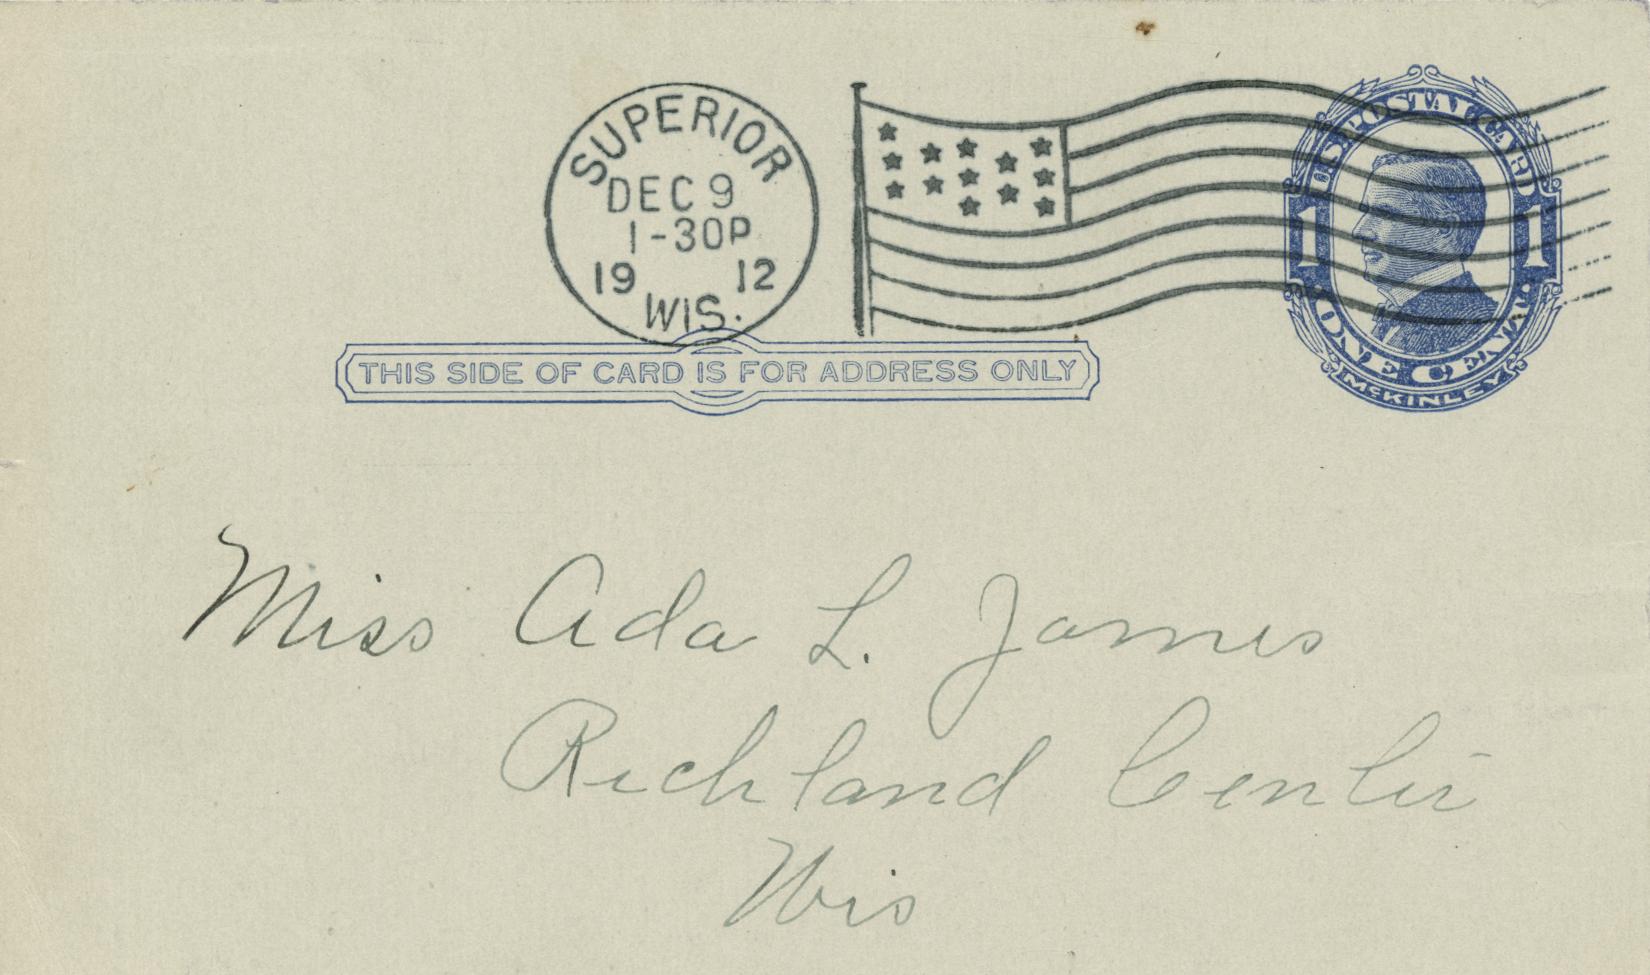 SUPERIOR
DEC 9
1-30P
19 12
WIS.
U.S. POSTAL CARD
1 1
ONE CENT
McKINLEY
THIS SIDE OF CARD IS FOR ADDRESS ONLY
Miss Ada L. James
Richland Center
Wis